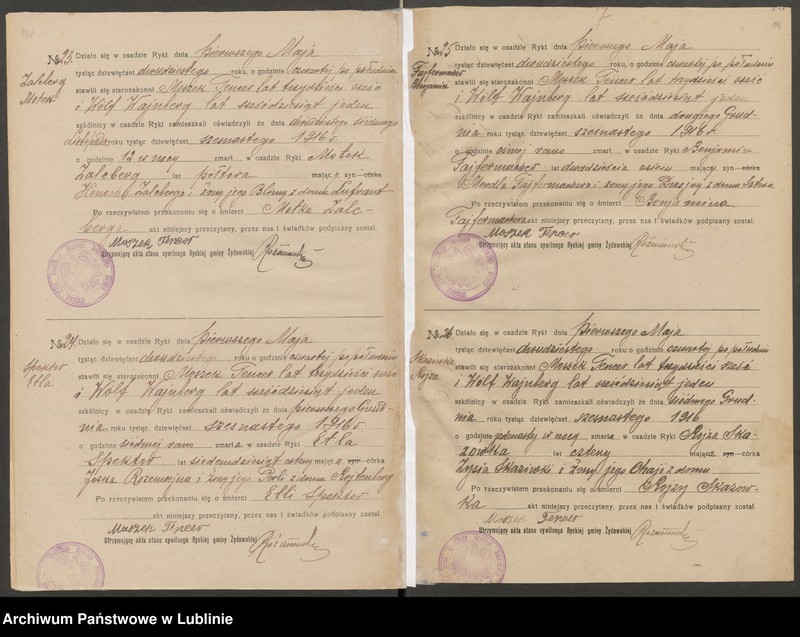 №23. Działo się w osadzie Ryki dnia pierwszego Maja
Zalcberg
Motek
tysiąc dziewięćset dwudziestego roku, o godzinie czwartej po południu
stawili się starozakonni Moszek Fencer lat trzydzieści sześć
i Wolf Wajnberg lat sześćdziesiąt jeden
szkólnicy w osadzie Ryki zamieszkali i oświadczyli że dnia dwudziestego siódmego
Listopada roku tysiąc dziewięćset szesnastego 1916 r.
o godzinie 12 w nocy zmarł w osadzie Ryki Motek
Zalcberg lat półtora mający syn córka
Henocha Zalcberga i żony jego Blimy z domu
Po rzeczywistem przekonaniu się o śmierci Motka Zalc-
berga akt niniejszy przeczytany, przez nas i świadków podpisany został.
Moszek Fencer
Utrzymujący akta stanu cywilnego Ryckiej gminy Żydowskiej
№24. Działo się w osadzie Ryki dnia pierwszego Maja
Spektor
Etla
tysiąc dziewięćset dwudziestego roku o godzinie czwartej po południu
stawili się starozakonni Moszek Fencer lat trzydzieści sześć
i Wolf Wajnberg lat sześćdziesiąt jeden
szkólnicy w osadzie Ryki zamieszkali i oświadczyli że dnia pierwszego Grud-
nia roku tysiąc dziewięćset szesnastego 1916 r.
o godzinie siódmej rano zmarła w osadzie Ryki Etla
Spektor lat siedemdziesiąt cztery mająca syn córka
Joska i żony jego Perli z domu Rojtenberg
Po rzeczywistem przekonaniu się o śmierci Etli Spektor
akt niniejszy przeczytany, przez nas i świadków podpisany został.
Moszek Fencer
Utrzymujący akta stanu cywilnego Ryckiej gminy Żydowskiej
№25. Działo się w osadzie Ryki dnia pierwszego Maja
Fajfermacher
Benjamin
tysiąc dziewięćset dwudziestego roku, o godzinie czwartej po południu
stawili się starozakonni Moszek Fencer lat trzydzieści sześć
i Wolf Wajnberg lat sześćdziesiąt jeden
szkólnicy w osadzie Ryki zamieszkali i oświadczyli że dnia drugiego Grud-
nia roku tysiąc dziewięćset szesnastego 1916 r.
o godzinie ósmej rano zmarł w osadzie Ryki Benjamin
Fajfermacher lat dwadzieścia osiem mający syn córka
Mendla Fajfermachera i żony jego z domu
Po rzeczywistem przekonaniu się o śmierci Benjamina
Fajfermachera akt niniejszy przeczytany, przez nas i świadków podpisany został.
Moszek Fencer
Utrzymujący akta stanu cywilnego Ryckiej gminy Żydowskiej
№26. Działo się w osadzie Ryki dnia pierwszego Maja
Skazówka
Rojza
tysiąc dziewięćset dwudziestego roku o godzinie czwartej po południu
stawili się starozakonni Moszek Fencer lat trzydzieści sześć
i Wolf Wajnberg lat sześćdziesiąt jeden
szkólnicy w osadzie Ryki zamieszkali i oświadczyli że dnia siódmego Grud-
nia roku tysiąc dziewięćset szesnastego 1916
o godzinie w nocy zmarła w osadzie Ryki Rojza Ska-
zówka lat cztery mająca syn córka
i żony jego Chaji z domu
Po rzeczywistem przekonaniu się o śmierci Rojzy Skazów-
ka akt niniejszy przeczytany, przez nas i świadków podpisany został.
Moszek Fencer
Utrzymujący akta stanu cywilnego Ryckiej gminy Żydowskiej
Archiwum Państwowe w Lublinie